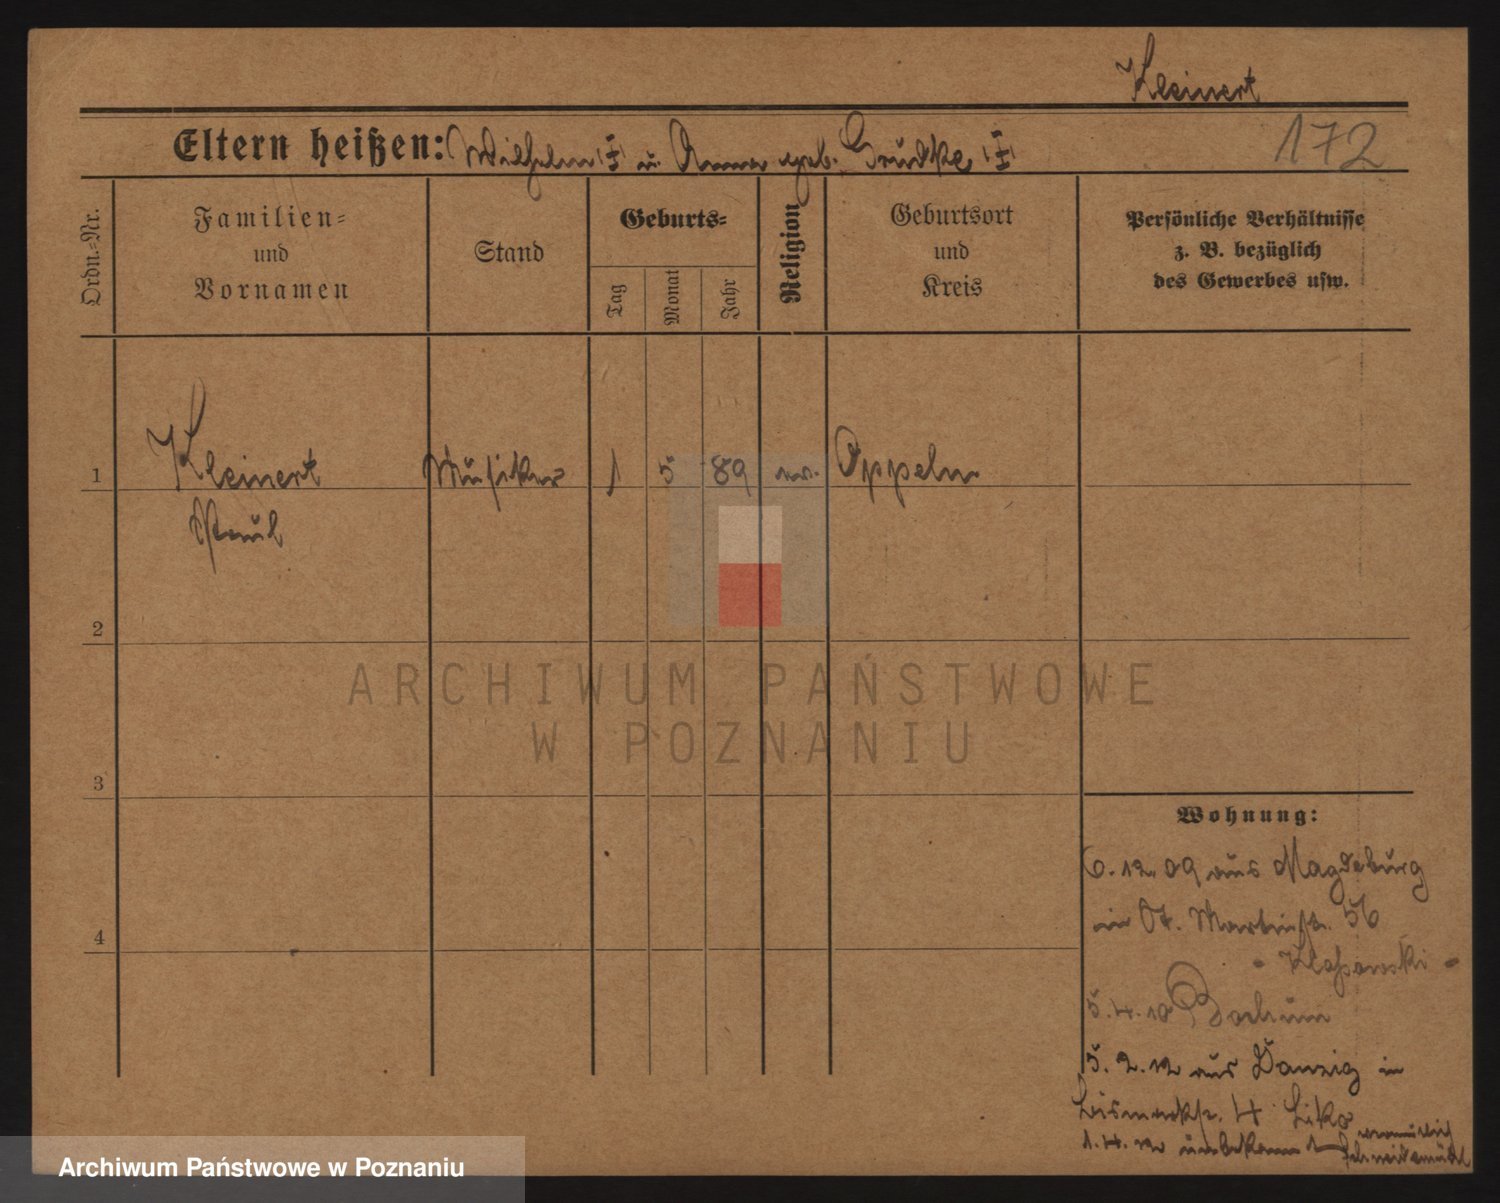 Kleinert
Eltern heißen: Wilhelm u. Anna geb. Grudke
172
Ordn.=Nr.
Familien=
und
Vornamen
Stand
Geburts=
Tag
Monat
Jahr
Religion
Geburtsort
und
Kreis
Persönliche Verhältnisse
z. B. bezüglich
des Gewerbes usw.
1
Kleinert Musiker 1 5 89 Oppeln
Paul
2
3
4
ARCHIWUM PAŃSTWOWE
W POZNANIU
Wohnung:
6.12.09 aus Magdeburg
in St. Martinstr. 56
- Klossowski -
5.4.10 Bochum
5.2.12 aus Danzig in
Bismarckstr. 4
1.4.12 unbekannt
Schneidemühl
Archiwum Państwowe w Poznaniu